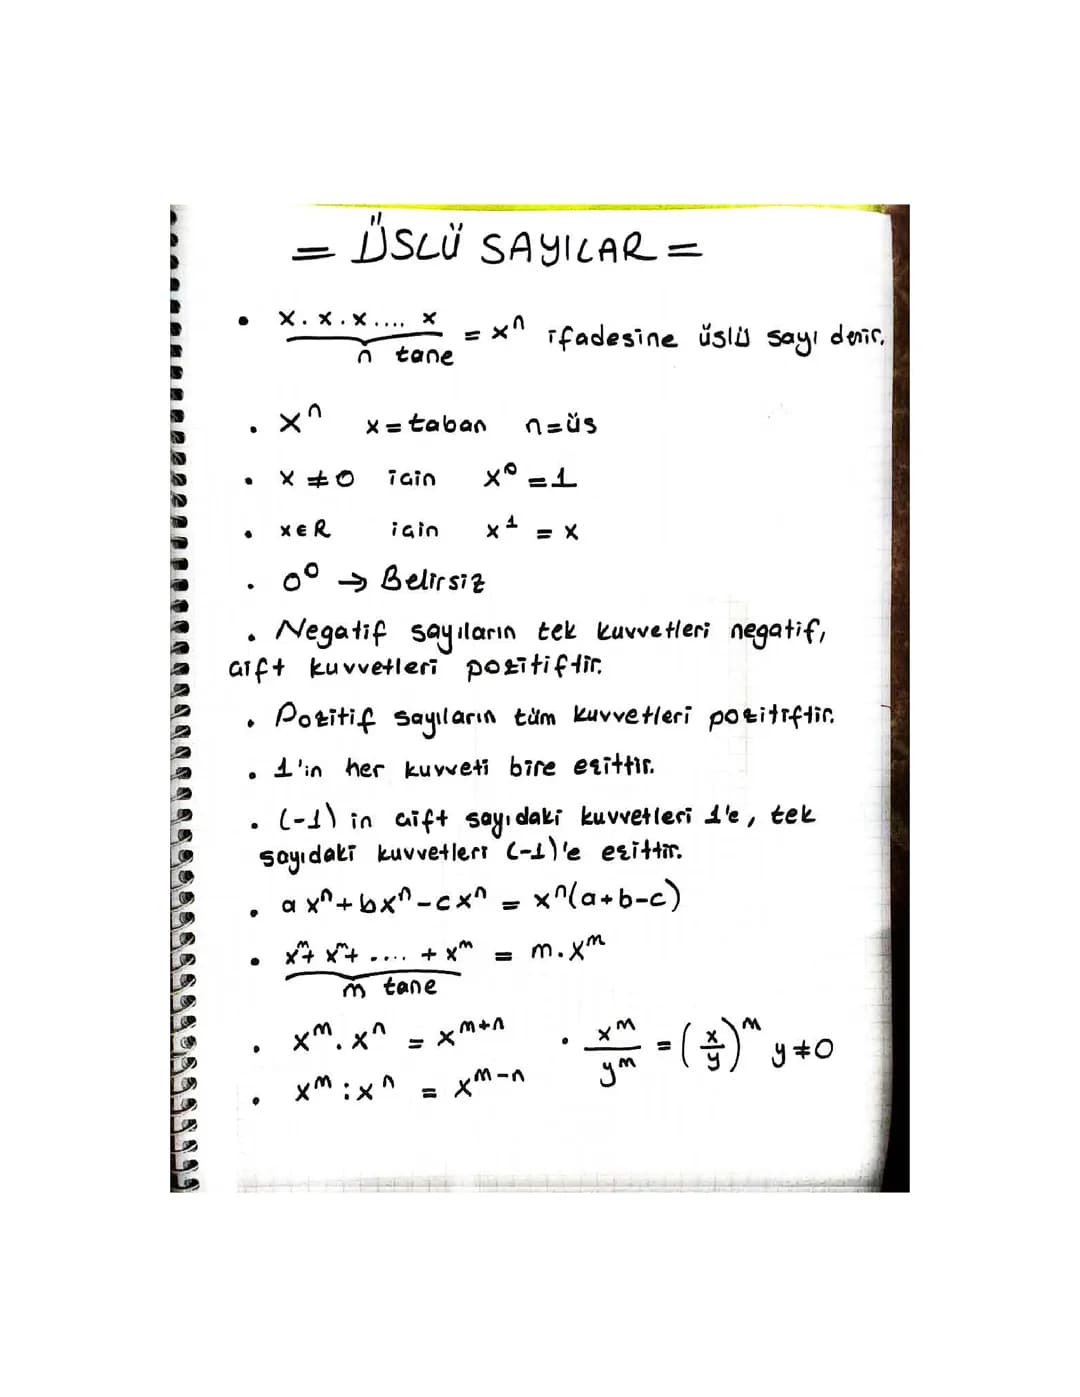 = ÜSLÜ SAYILAR =
• x.x.x.... x = xⁿ ifadesine üslü sayı denir.
n tane
• xⁿ x=taban n=üs
• x ≠ 0 için x⁰ = 1
• x∈R için x¹ = x
• 0⁰ → Belirsiz
• Negatif sayıların tek kuvvetleri negatif,
çift kuvvetleri pozitiftir.
• Pozitif sayıların tüm kuvvetleri pozitiftir.
• 1'in her kuvveti bire eşittir.
• (-1) in çift sayıdaki kuvvetleri 1'e, tek
sayıdaki kuvvetleri (-1)'e eşittir.
• a xⁿ + bxⁿ - cxⁿ = xⁿ(a+b-c)
• xᵐ+ xᵐ+ .... + xᵐ = m.xᵐ
m tane
• xᵐ.xⁿ = xᵐ⁺ⁿ • xᵐ/yᵐ = (x/y)ᵐ y≠0
• xᵐ:xⁿ = xᵐ⁻ⁿ